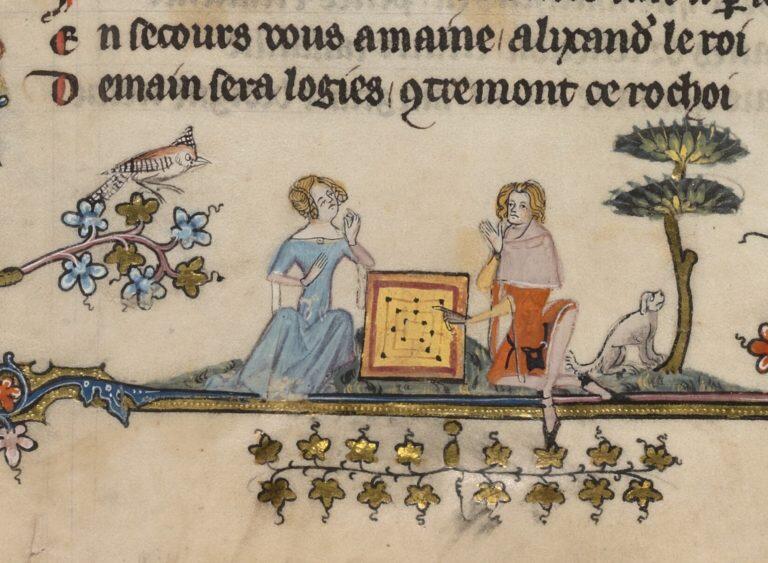 En secours vous amaine / alixand' le roi
Demain sera logies / ꝯtremont ce rochoi